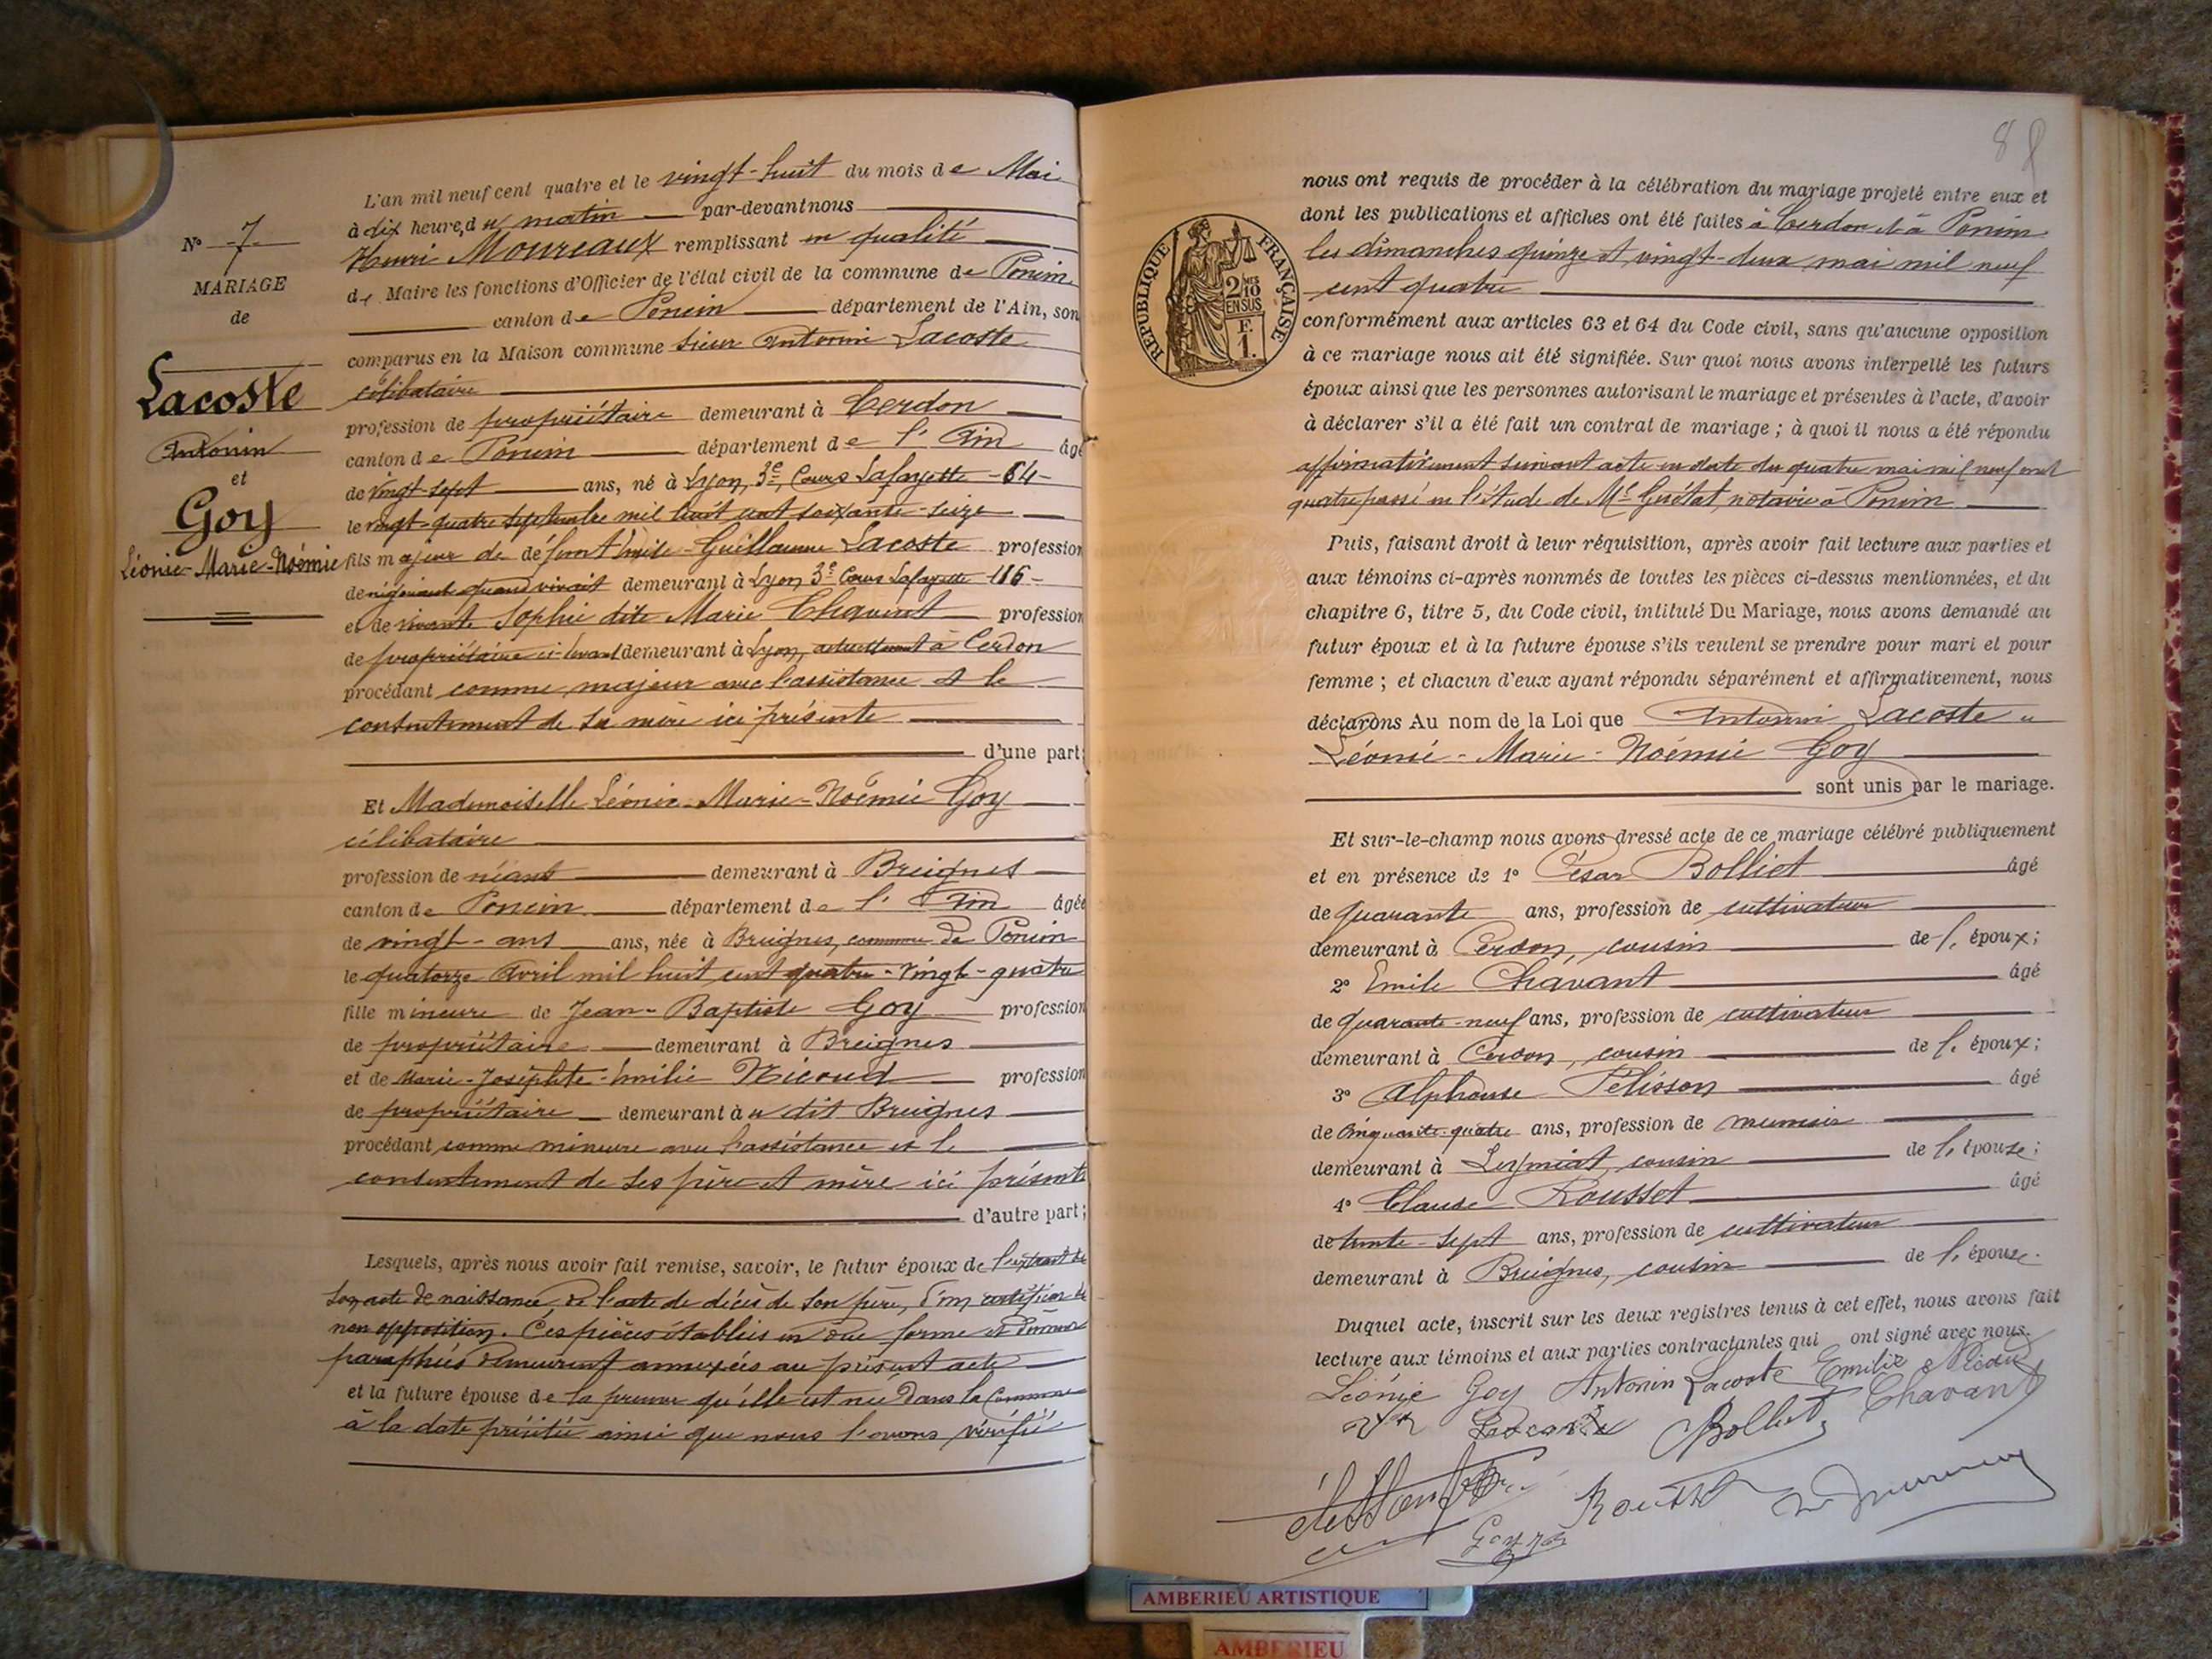 N° 7
MARIAGE
de
Lacoste
Antonin
et
Goy
Léonie-Marie-Noémie
L'an mil neuf cent quatre et le vingt-huit du mois de Mai
à dix heures du matin par-devant nous
Henri Moureaux remplissant en qualité
de Maire les fonctions d'Officier de l'état civil de la commune de Poncin
canton de Poncin département de l'Ain, son
comparus en la Maison commune sieur Antonin Lacoste
célibataire
profession de propriétaire demeurant à Cerdon
canton de Poncin département de l'Ain âgé
de vingt-sept ans, né à Lyon, 3e, Cours Lafayette - 64 -
le vingt-quatre septembre mil huit cent soixante-seize
fils majeur de défunt Emile-Guillaume Lacoste profession
de négociant quand vivait demeurant à Lyon 3e Cours Lafayette 116 -
et de vivante Sophie dite Marie profession
de propriétaire ci-devant demeurant à Lyon, actuellement à Cerdon
procédant comme majeur avec l'assistance et le
consentement de sa mère ici présente
d'une part;
Et Mademoiselle Léonie-Marie-Noémie Goy
célibataire
profession de néant demeurant à Breignes
canton de Poncin département de l'Ain âgée
de vingt-ans ans, née à Breignes, commune de Poncin
le quatorze Avril mil huit cent quatre-vingt-quatre
fille mineure de Jean-Baptiste Goy profession
de propriétaire demeurant à Breignes
et de Marie-Josephte-Emilie Nicoud profession
de propriétaire demeurant à dit Breignes
procédant comme mineure avec l'assistance et le
consentement de ses père et mère ici présents
d'autre part;
Lesquels, après nous avoir fait remise, savoir, le futur époux de l'extrait de
son acte de naissance, de l'acte de décès de son père, d'un certificat de
non opposition. Ces pièces établies en due forme et dûment
paraphées demeurent annexées au présent acte
et la future épouse de la preuve qu'elle est née dans la Commune
à la date précitée ainsi que nous l'avons vérifié
8
RÉPUBLIQUE FRANÇAISE
2/10 MES
EN SUS
F.
1.
nous ont requis de procéder à la célébration du mariage projeté entre eux et
dont les publications et affiches ont été faites à Cerdon et à Poncin
les dimanches quinze et vingt-deux mai mil neuf
cent quatre
conformément aux articles 63 et 64 du Code civil, sans qu'aucune opposition
à ce mariage nous ait été signifiée. Sur quoi nous avons interpellé les futurs
époux ainsi que les personnes autorisant le mariage et présentes à l'acte, d'avoir
à déclarer s'il a été fait un contrat de mariage ; à quoi il nous a été répondu
affirmativement suivant acte en date du quatre mai mil neuf cent
quatre passé en l'étude de Me notaire à Poncin
Puis, faisant droit à leur réquisition, après avoir fait lecture aux parties et
aux témoins ci-après nommés de toutes les pièces ci-dessus mentionnées, et du
chapitre 6, titre 5, du Code civil, intitulé Du Mariage, nous avons demandé au
futur époux et à la future épouse s'ils veulent se prendre pour mari et pour
femme ; et chacun d'eux ayant répondu séparément et affirmativement, nous
déclarons Au nom de la Loi que Antonin Lacoste
Léonie-Marie-Noémie Goy
sont unis par le mariage.
Et sur-le-champ nous avons dressé acte de ce mariage célébré publiquement
et en présence de 1° César Bolliet âgé
de quarante ans, profession de cultivateur
demeurant à Cerdon, cousin de l'époux;
2° Emile Chavant âgé
de quarante-neuf ans, profession de cultivateur
demeurant à Cerdon, cousin de l'époux;
3° Alphonse Pélisson âgé
de cinquante-quatre ans, profession de
demeurant à Leyment, cousin de l'épouse;
4° Claude Rousset âgé
de trente-sept ans, profession de cultivateur
demeurant à Breignes, cousin de l'épouse.
Duquel acte, inscrit sur les deux registres tenus à cet effet, nous avons fait
lecture aux témoins et aux parties contractantes qui ont signé avec nous.
Léonie Goy Antonin Lacoste Emilie Nicoud
Lacoste Bolliet Chavant
Rousset
Goy
AMBERIEU ARTISTIQUE
AMBERIEU